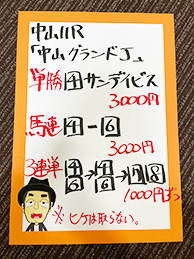 中山11R
「中山グランドJ」
単勝④サンデイビス
3000円
馬連④-⑥
3000円
3連単
1000円ずつ
※ヒゲは取らない。